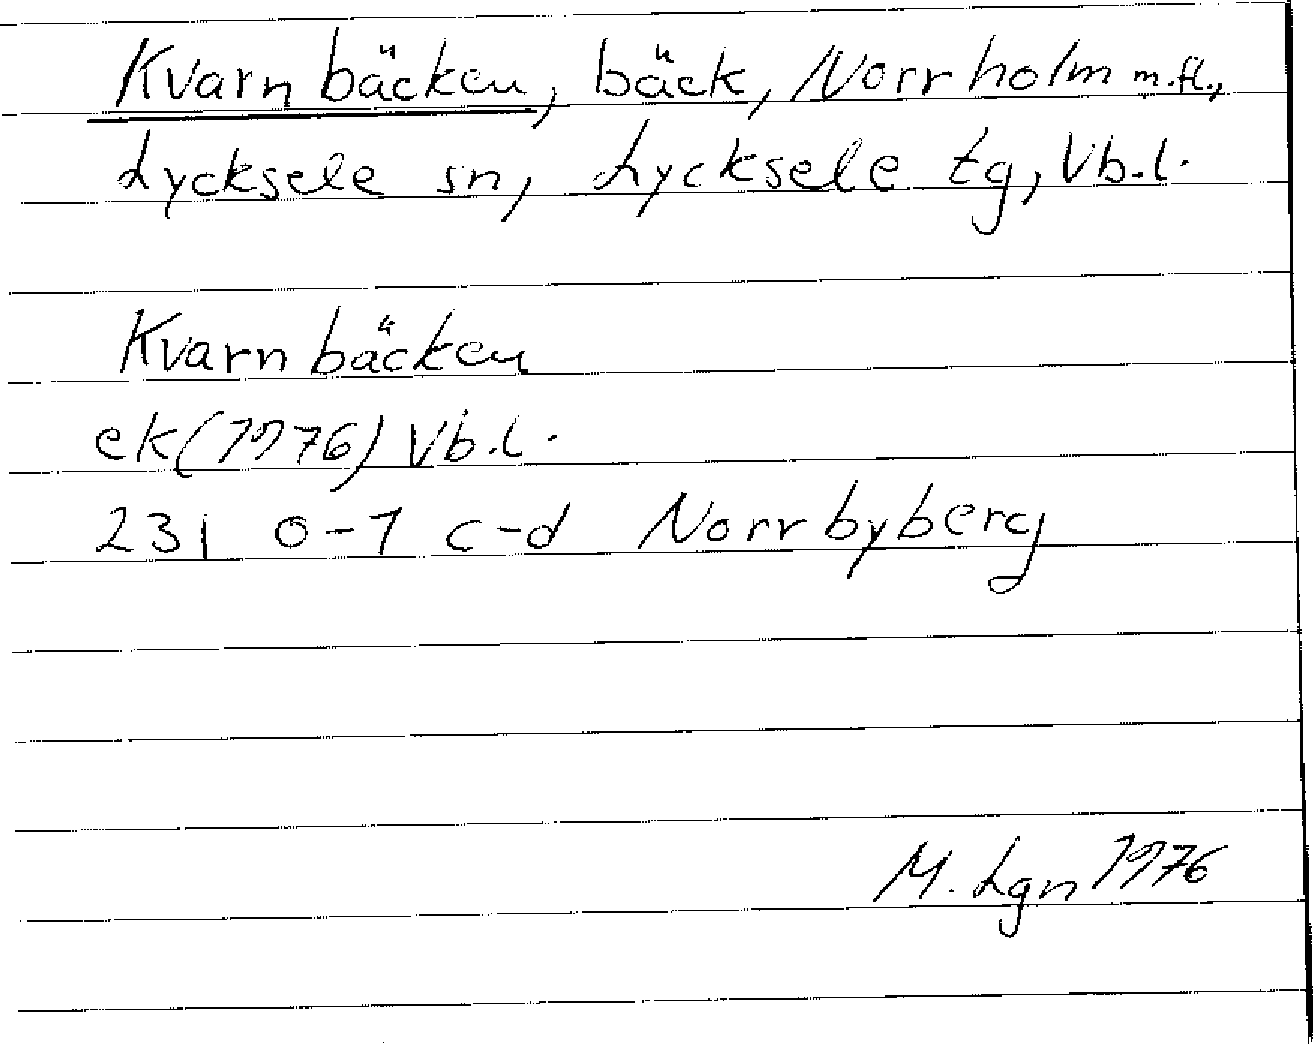 Kvarnbäcken, bäck, Norrholm m.fl.,
Lycksele sn, Lycksele tg, Vb.l.
Kvarnbäcken
ek(1976) Vb.l.
23i 0-1 c-d Norrbyberg
M. Lgn 1976